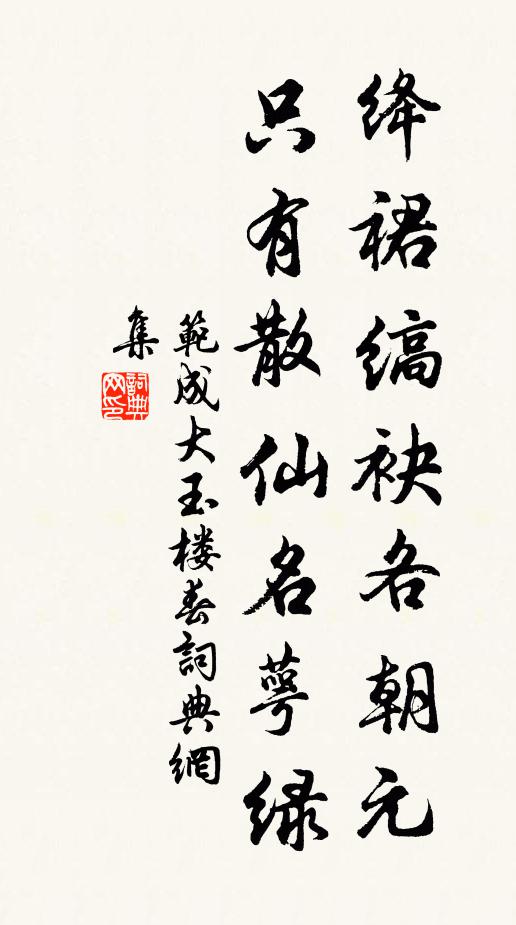 绛裙缟袂各朝元
只有散仙名萼绿
範成大玉楼春詞典網
集
詞典网印